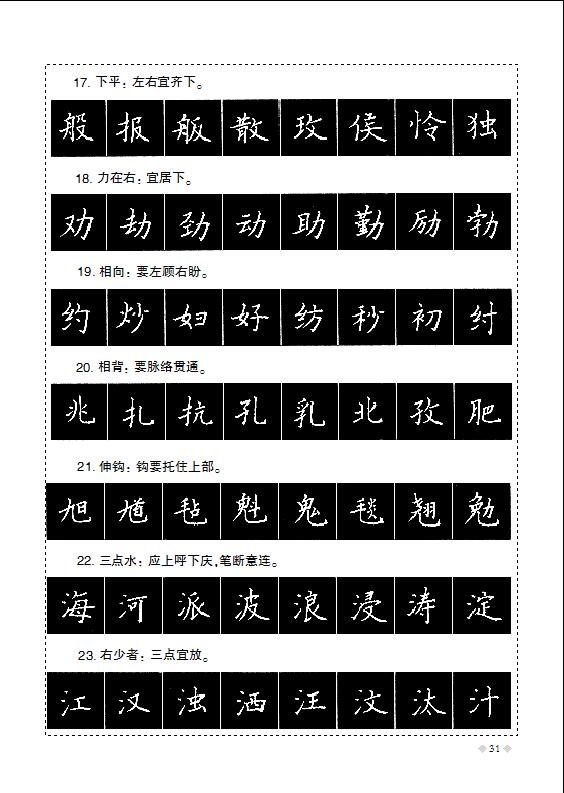 17. 下平：左右宜齐下。
般报舨散玫侯怜独
18. 力在右：宜居下。
劝劫劲动助勤励勃
19. 相向：要左顾右盼。
约炒妇好纺秒初纣
20. 相背：要脉络贯通。
兆扎抗孔乳北孜肥
21. 伸钩：钩要托住上部。
旭馗毡魁鬼毯翘勉
22. 三点水：应上呼下庆,笔断意连。
海河派波浪浸涛淀
23. 右少者：三点宜放。
江汉浊洒汪汶汰汁
31